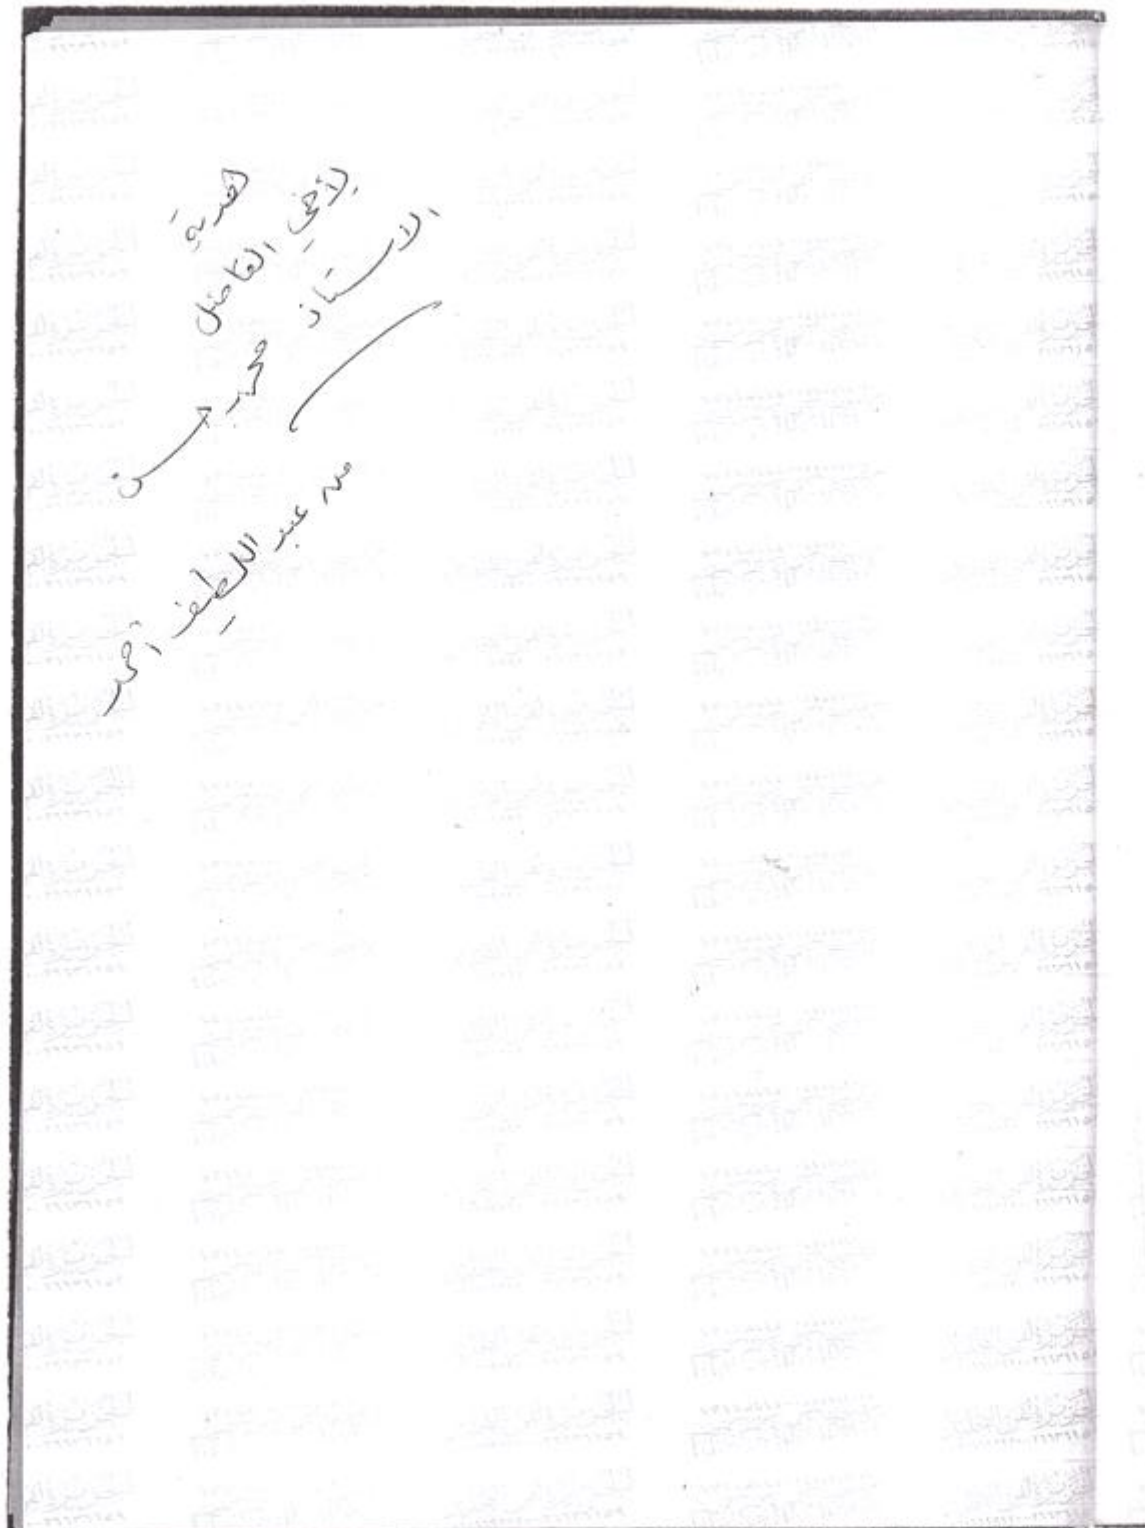 هدية
لأخي الفاضل
الاستاذ محمد حسن
من عبد اللطيف أحمد